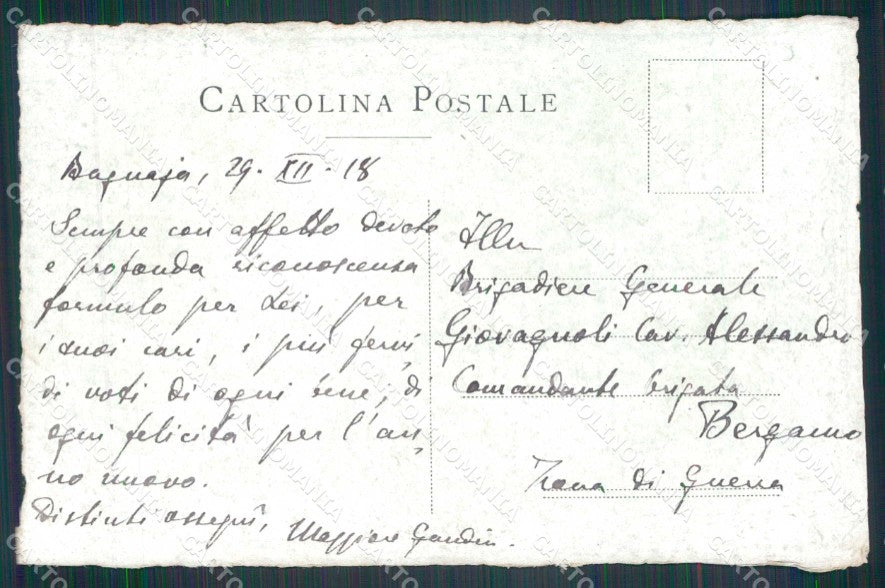 CARTOLINA POSTALE
Bagnaja, 29-XII-18
Sempre con affetto devoto
e profonda riconoscenza
formulo per Lei, per
i suoi cari, i più fervi,
di voti di ogni bene, di
ogni felicità per l'an,
no nuovo.
Distinti ossequi,
Maggiore Gandin.
Illm
Brigadiere Generale
Giovagnoli Cav. Alessandro
Comandante brigata
Bergamo
Zona di Guerra
CARTOLINOMANIA